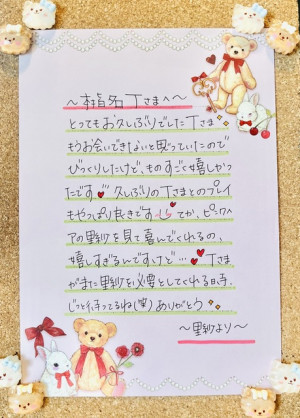 〜椎名Tさまへ〜
とってもお久しぶりでしたTさま
もうお会いできないと思っていたので
びっくりしたけど、ものすごく嬉しかっ
たです 久しぶりのTさまとのプレイ
もやっぱり好きです てか、ピンクヘ
アの里紗を見て喜んでくれるの、
嬉しすぎるんですけど… Tさま
がまた里紗を必要としてくれる日時、
じっと待ってるね(笑) ありがとう
〜里紗より〜